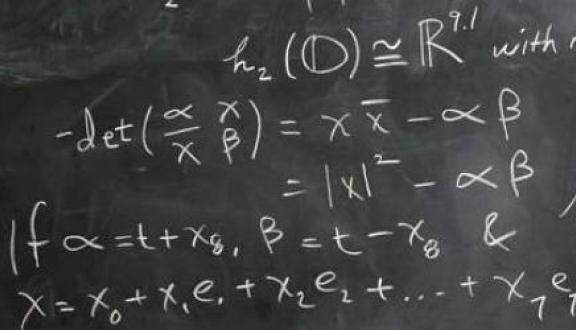 h₂(𝕆) ≅ ℝ^{9,1} with
-det(α x / x̄ β) = x x̄ - αβ
= |x|² - αβ
If α = t + x₈, β = t - x₈ &
x = x₀ + x₁e₁ + x₂e₂ + ... + x₇e₇